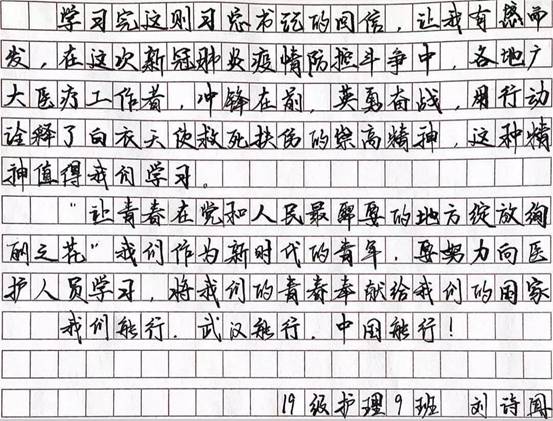 学习完这则习总书记的回信，让我有感而
发，在这次新冠肺炎疫情防控斗争中，各地广
大医疗工作者，冲锋在前，英勇奋战，用行动
诠释了白衣天使救死扶伤的崇高精神，这种精
神值得我们学习。
“让青春在党和人民最需要的地方绽放绚
丽之花”我们作为新时代的青年，要努力向医
护人员学习，将我们的青春奉献给我们的国家
我们能行．武汉能行．中国能行！
19级护理9班 刘诗雨